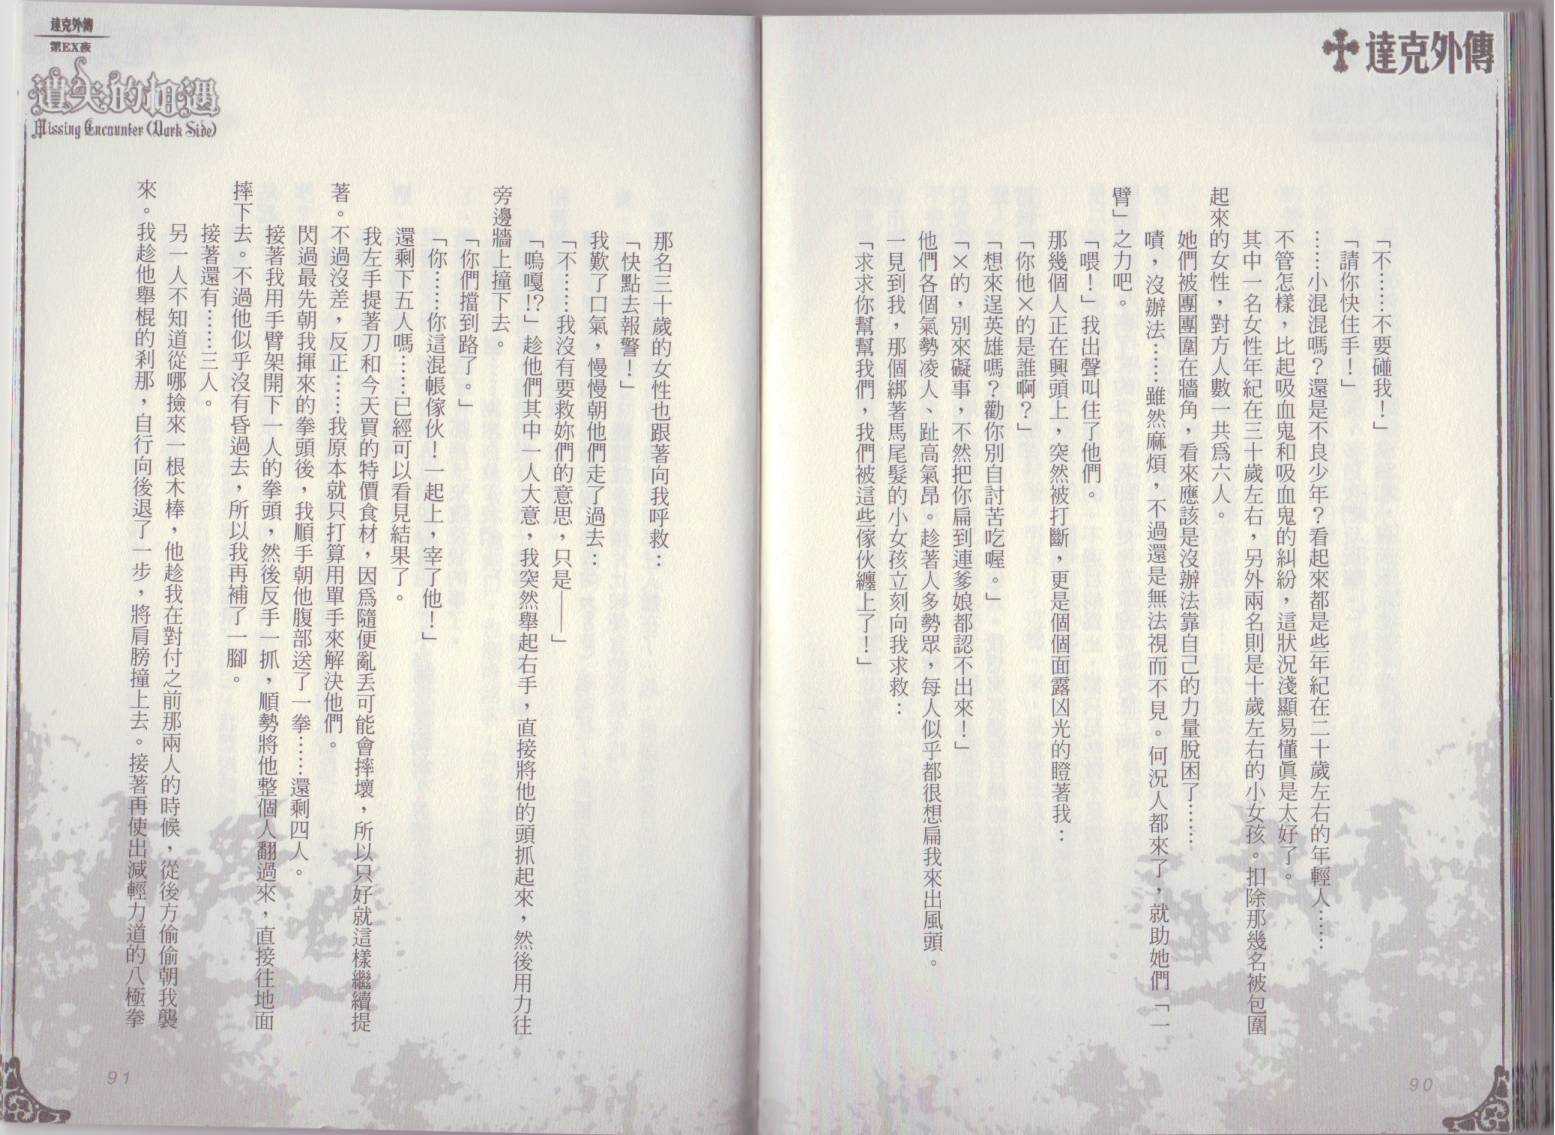 達克外傳
「不……不要碰我！」
「請你快住手！」
……小混混嗎？還是不良少年？看起來都是些年紀在二十歲左右的年輕人……
不管怎樣，比起吸血鬼和吸血鬼的糾紛，這狀況淺顯易懂眞是太好了。
其中一名女性年紀在三十歲左右，另外兩名則是十歲左右的小女孩。扣除那幾名被包圍
起來的女性，對方人數一共爲六人。
她們被團團圍在牆角，看來應該是沒辦法靠自己的力量脫困了……
嘖，沒辦法……雖然麻煩，不過還是無法視而不見。何況人都來了，就助她們「一
臂」之力吧。
「喂！」我出聲叫住了他們。
那幾個人正在興頭上，突然被打斷，更是個個面露凶光的瞪著我：
「你他×的是誰啊？」
「想來逞英雄嗎？勸你別自討苦吃喔。」
「×的，別來礙事，不然把你扁到連爹娘都認不出來！」
他們各個氣勢凌人、趾高氣昂。趁著人多勢眾，每人似乎都很想扁我來出風頭。
一見到我，那個綁著馬尾髮的小女孩立刻向我求救：
「求求你幫幫我們，我們被這些傢伙纏上了！」
90
達克外傳
第EX夜
遺失的相遇
Missing Encounter (Dark Side)
那名三十歲的女性也跟著向我呼救：
「快點去報警！」
我歎了口氣，慢慢朝他們走了過去：
「不……我沒有要救妳們的意思，只是——」
「嗚嘎!?」趁他們其中一人大意，我突然舉起右手，直接將他的頭抓起來，然後用力往
旁邊牆上撞下去。
「你們擋到路了。」
「你……你這混帳傢伙！一起上，宰了他！」
還剩下五人嗎……已經可以看見結果了。
我左手提著刀和今天買的特價食材，因爲隨便亂丟可能會摔壞，所以只好就這樣繼續提
著。不過沒差，反正……我原本就只打算用單手來解決他們。
閃過最先朝我揮來的拳頭後，我順手朝他腹部送了一拳……還剩四人。
接著我用手臂架開下一人的拳頭，然後反手一抓，順勢將他整個人翻過來，直接往地面
摔下去。不過他似乎沒有昏過去，所以我再補了一腳。
接著還有……三人。
另一人不知道從哪撿來一根木棒，他趁我在對付之前那兩人的時候，從後方偷偷朝我襲
來。我趁他舉棍的剎那，自行向後退了一步，將肩膀撞上去。接著再使出減輕力道的八極拳
91